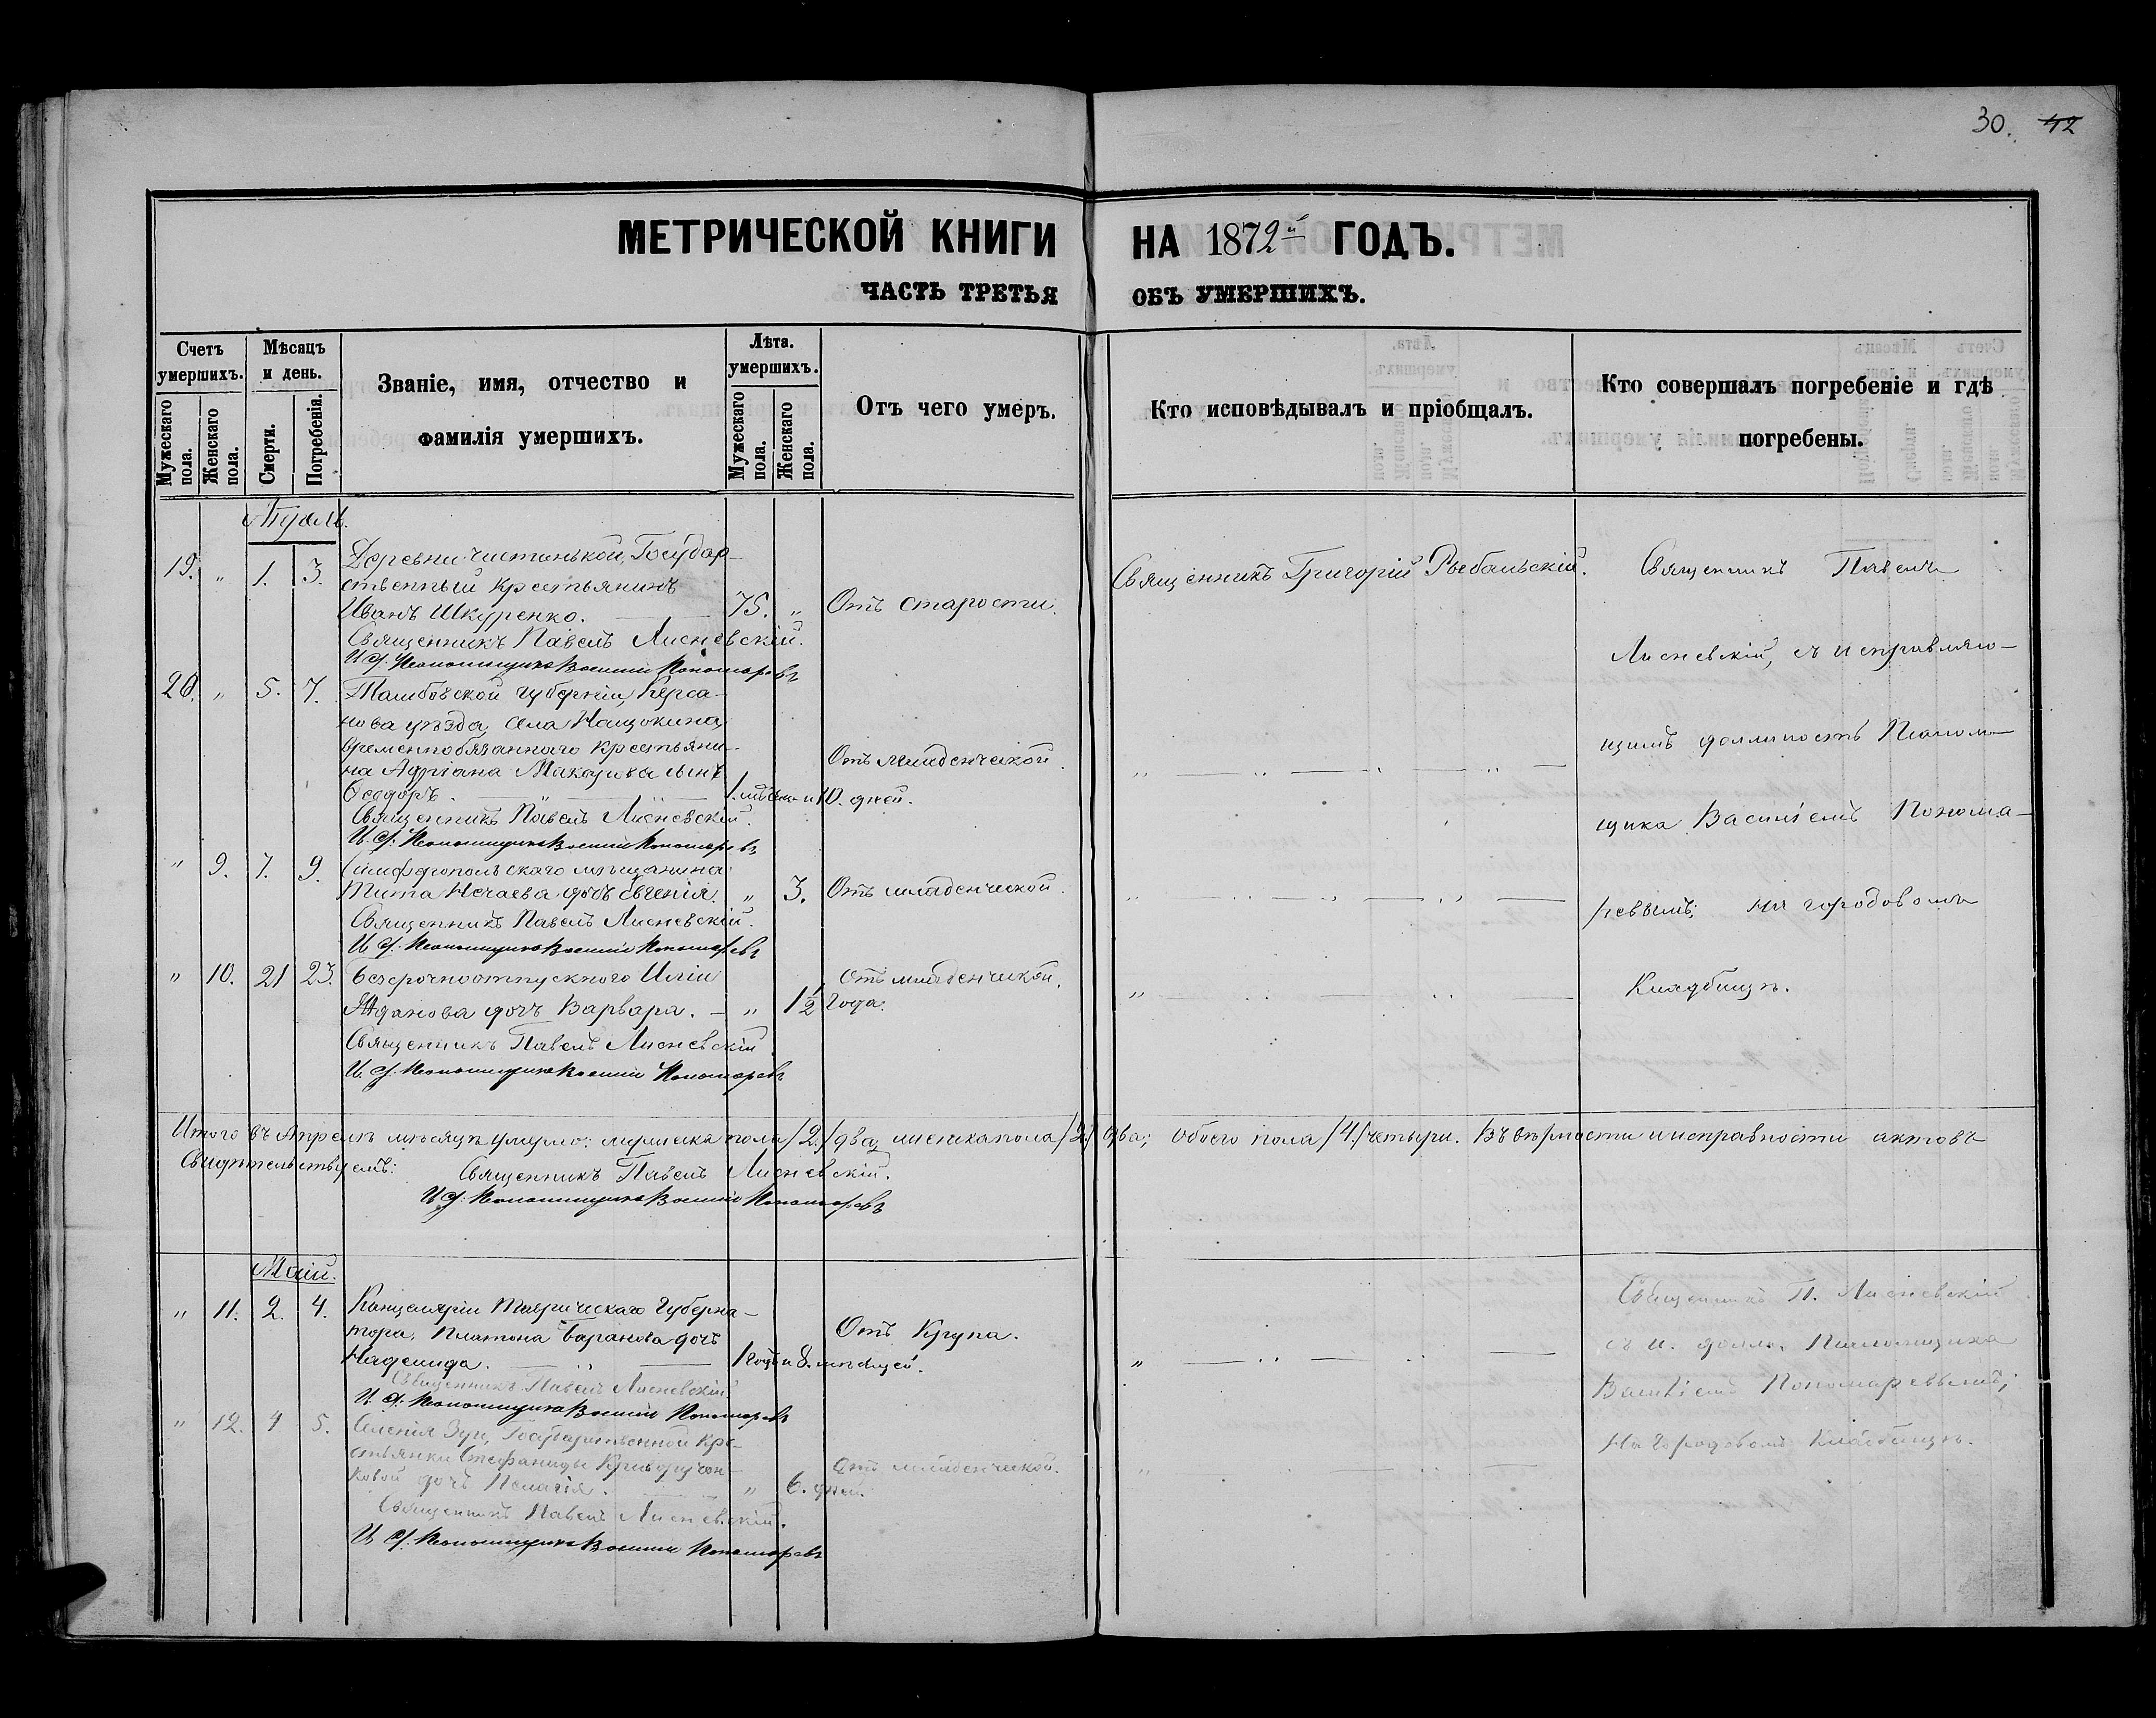 30. 42
МЕТРИЧЕСКОЙ КНИГИ НА 1872й ГОДЪ.
ЧАСТЬ ТРЕТЬЯ ОБЪ УМЕРШИХЪ.
Счетъ умершихъ.
Мужескаго пола.
Женскаго пола.
Мѣсяцъ и день.
Смерти.
Погребенія.
Званіе, имя, отчество и
фамилія умершихъ.
Лѣта умершихъ.
Мужескаго пола.
Женскаго пола.
Отъ чего умеръ.
Кто исповѣдывалъ и пріобщалъ.
Кто совершалъ погребеніе и гдѣ
погребены.
19. " 1. 3. Деревни Чистинькой, Государ-
ственный крестьянинъ
Иванъ Шкуренко. 75. " Отъ старости.
Священникъ Григорій Рыбальскій.
Священникъ Павелъ Лисневскій.
И. д. Псаломщика Василій Пономаревъ
20. " 5. 7. Тамбовской губерніи, Кирса-
нова уѣзда, села Нащокина,
временнообязаннаго крестьяни-
на Адріана Макарова сынъ
Ѳеодоръ. 1. мѣсяц. и 10. дней. Отъ младенческой.
Священникъ Павелъ Лисневскій.
И. д. Псаломщика Василій Пономаревъ
" 9. 7. 9. Симферопольскаго мѣщанина
Тита Нечаева дочь Евгенія. " 3. Отъ младенческой.
Священникъ Павелъ Лисневскій.
И. д. Псаломщика Василій Пономаревъ
" 10. 21 23. Безсрочноотпускного Иліи
Жданова дочь Варвара. " 1½ года. Отъ младенческой.
Священникъ Павелъ Лисневскій
И. д. Псаломщика Василій Пономаревъ
Священникъ Павелъ
Лисневскій, съ исправляю-
щимъ должность Псалом-
щика Василіемъ Понома-
ревымъ; на городовомъ
Кладбищѣ.
Итого въ Апрелѣ мѣсяцѣ умерло: мужеска пола /2./ два, женска пола /2./ два; обоего пола /4./ четыри. Въ вѣрности и исправности актовъ
Свидѣтельствуемъ: Священникъ Павелъ Лисневскій.
И. д. Псаломщика Василій Пономаревъ
Маій.
" 11. 2. 4. Канцеляріи Таврическаго Губерна-
тора, Платона Баранова дочь
Надежда. 1 годъ и 8. мѣсяцей. Отъ Крупа.
Священникъ Павелъ Лисневскій
И. д. Псаломщика Василій Пономаревъ
" 12. 4 5. Селенія Зуи, Государственной кре-
стьянки Стефаниды Криворучен-
ковой дочь Пелагія. " 6. дней. Отъ младенческой.
Священникъ Павелъ Лисневскій.
И. д. Псаломщика Василій Пономаревъ
Священникъ П. Лисневскій
съ и. долж. Псаломщика
Василіемъ Пономаревымъ;
На Городовомъ Кладбищѣ.